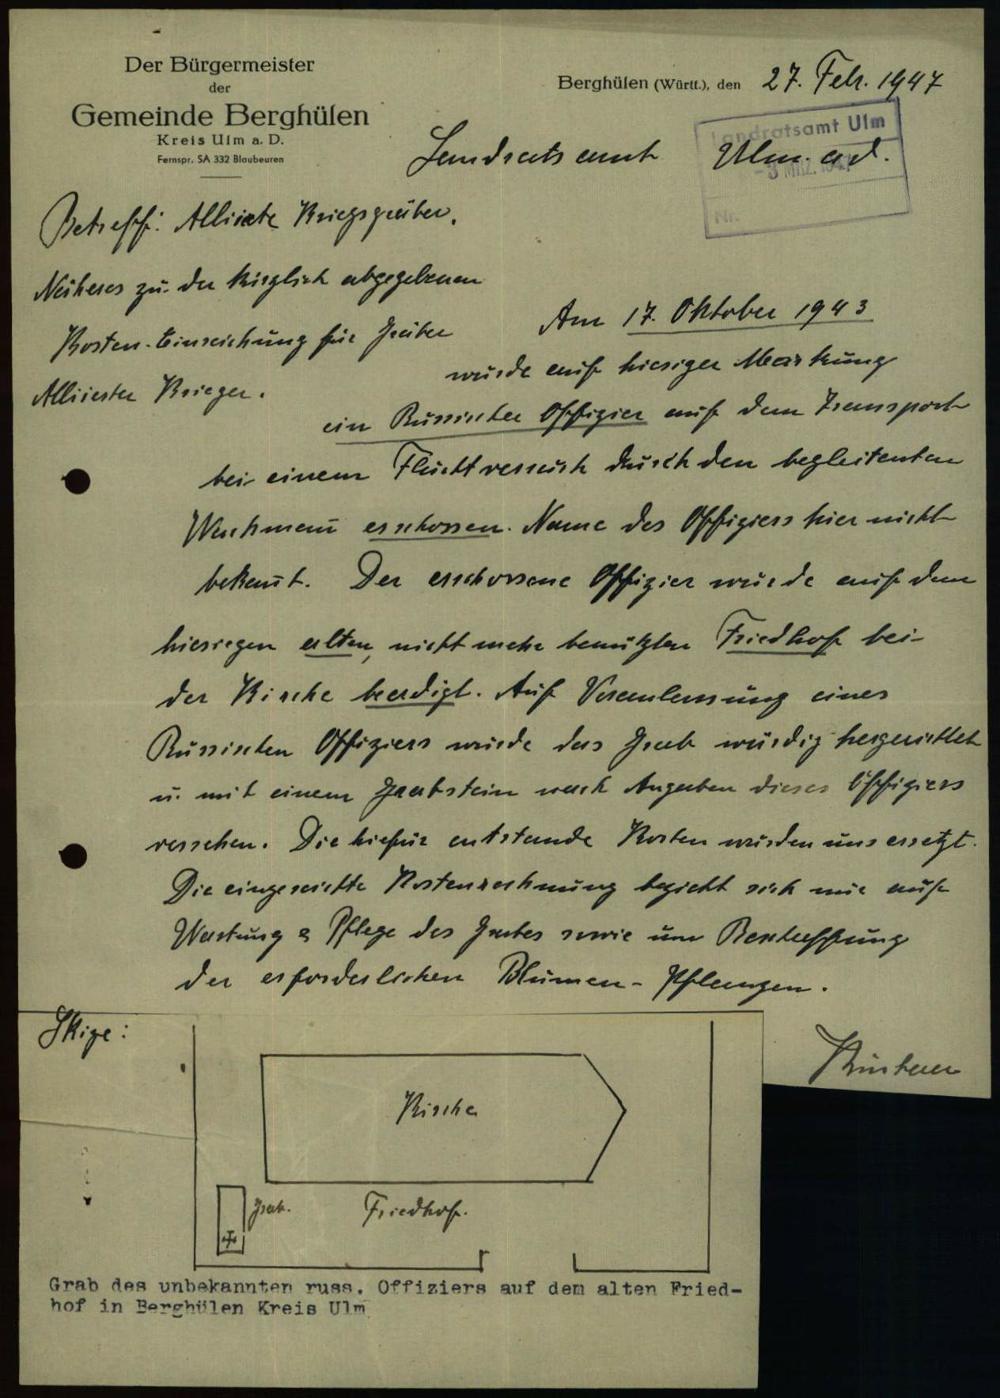 Der Bürgermeister
der
Gemeinde Berghülen
Kreis Ulm a. D.
Fernspr. SA 332 Blaubeuren
Berghülen (Württ.), den 27. Febr. 1947
Landratsamt Ulm a.d.
Landratsamt Ulm
-3 MRZ. 1947
Nr.
Betreff: Alliierte Kriegsgräber.
Näheres zu der kürzlich abgegebenen
Kosten-Einreichung für Gräber
Alliierter Krieger.
Am 17. Oktober 1943
wurde auf hiesiger Markung
ein Russischer Offizier auf dem Transport
bei einem Fluchtversuch durch den begleitenten
Wachmann erschossen. Name des Offiziers hier nicht
bekannt. Der erschossene Offizier wurde auf dem
hiesigen alten, nicht mehr benützten Friedhof bei
der Kirche beerdigt. Auf Veranlassung eines
Russischen Offiziers wurde das Grab würdig hergerichtet
u. mit einem Grabstein nach Angaben dieses Offiziers
versehen. Die hiefür entstande Kosten wurden uns ersetzt.
Die eingereichte Kostenrechnung bezieht sich nur auf
Wartung & Pflege des Grabes sowie um Beschaffung
der erforderlichen Blumen-Pflanzen.
Skize:
Kirche
Grab.
Friedhof.
Grab des unbekannten russ. Offiziers auf dem alten Fried-
hof in Berghülen Kreis Ulm